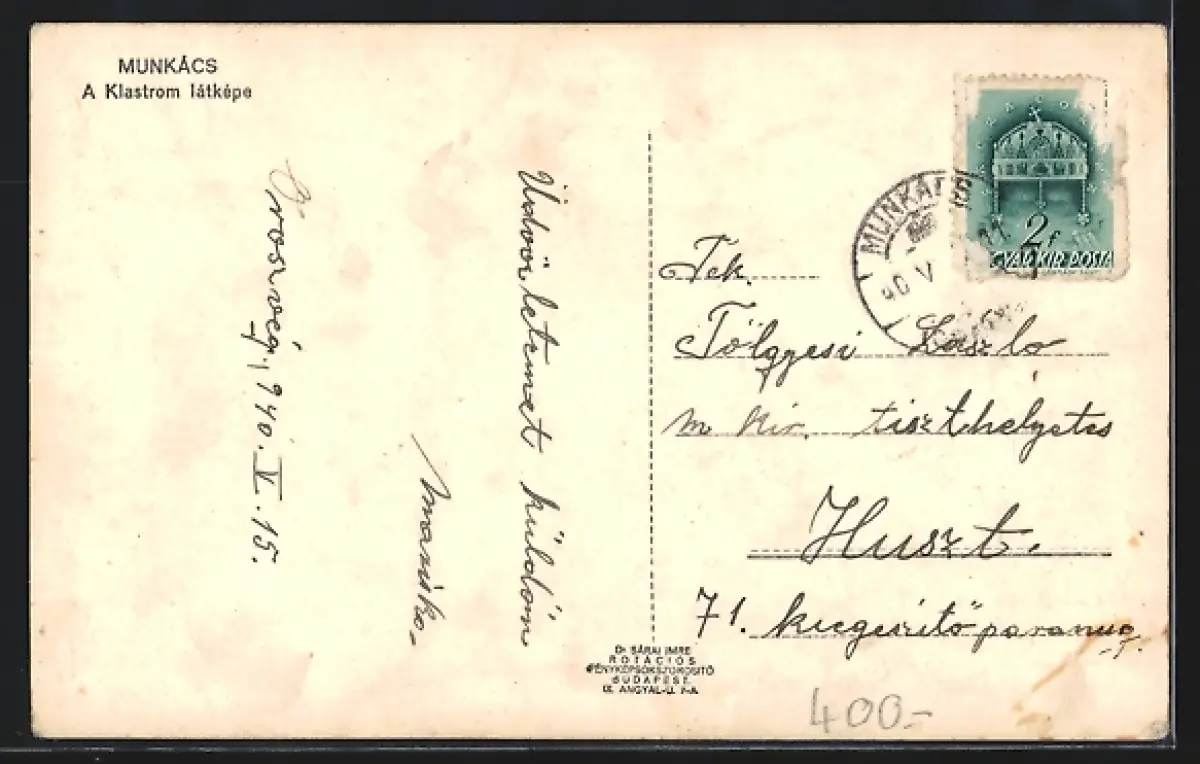 MUNKÁCS
A Klastrom látképe
Oroszvég, 940. V. 15.
Üdvözletemet küldöm
Mariska
MUNKÁCS
2f
MAGYAR KIR. POSTA
Tek.
Tölgyesi László
m. kir. tiszthelyettes
Huszt.
71. kiegészítő parancs
Dr SÁRAI IMRE
ROTÁCIÓS
FÉNYKÉPSOKSZOROSITÓ
BUDAPEST.
IX. ANGYAL-U. 7-A.
400-